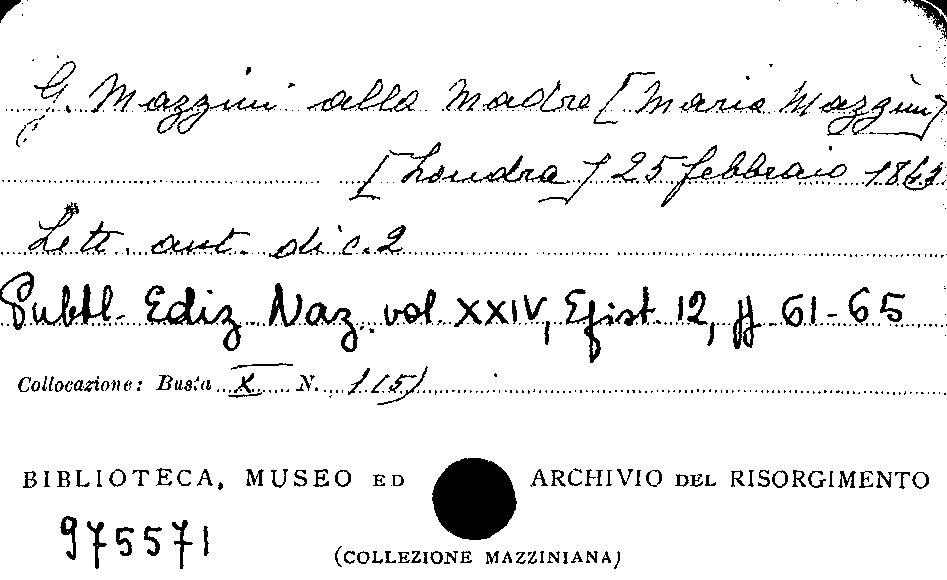 G. Mazzini alla Madre [Maria Mazzini]
[Londra] 25 febbraio
Lett. aut. di c. 2
Pubbl. Ediz. Naz. vol. XXIV, Epist. 12, pp. 61-65
Collocazione: Busta X N. 1 (5)
BIBLIOTECA, MUSEO ED ARCHIVIO DEL RISORGIMENTO
975571
(COLLEZIONE MAZZINIANA)